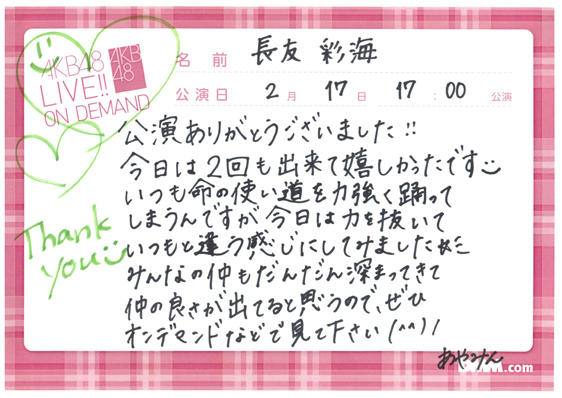 AKB48
LIVE!!
ON DEMAND
AKB
48
名前 長友 彩海
公演日 2月 17日 17:00 公演
公演ありがとうございました!!
今日は2回も出来て嬉しかったです
いつも命の使い道を力強く踊って
しまうんですが今日は力を抜いて
いつもと違う感じにしてみました
みんなの仲もだんだん深まってきて
仲の良さが出てると思うので、ぜひ
オンデマンドなどで見て下さい(^^)/
Thank
you
あやみん
.com